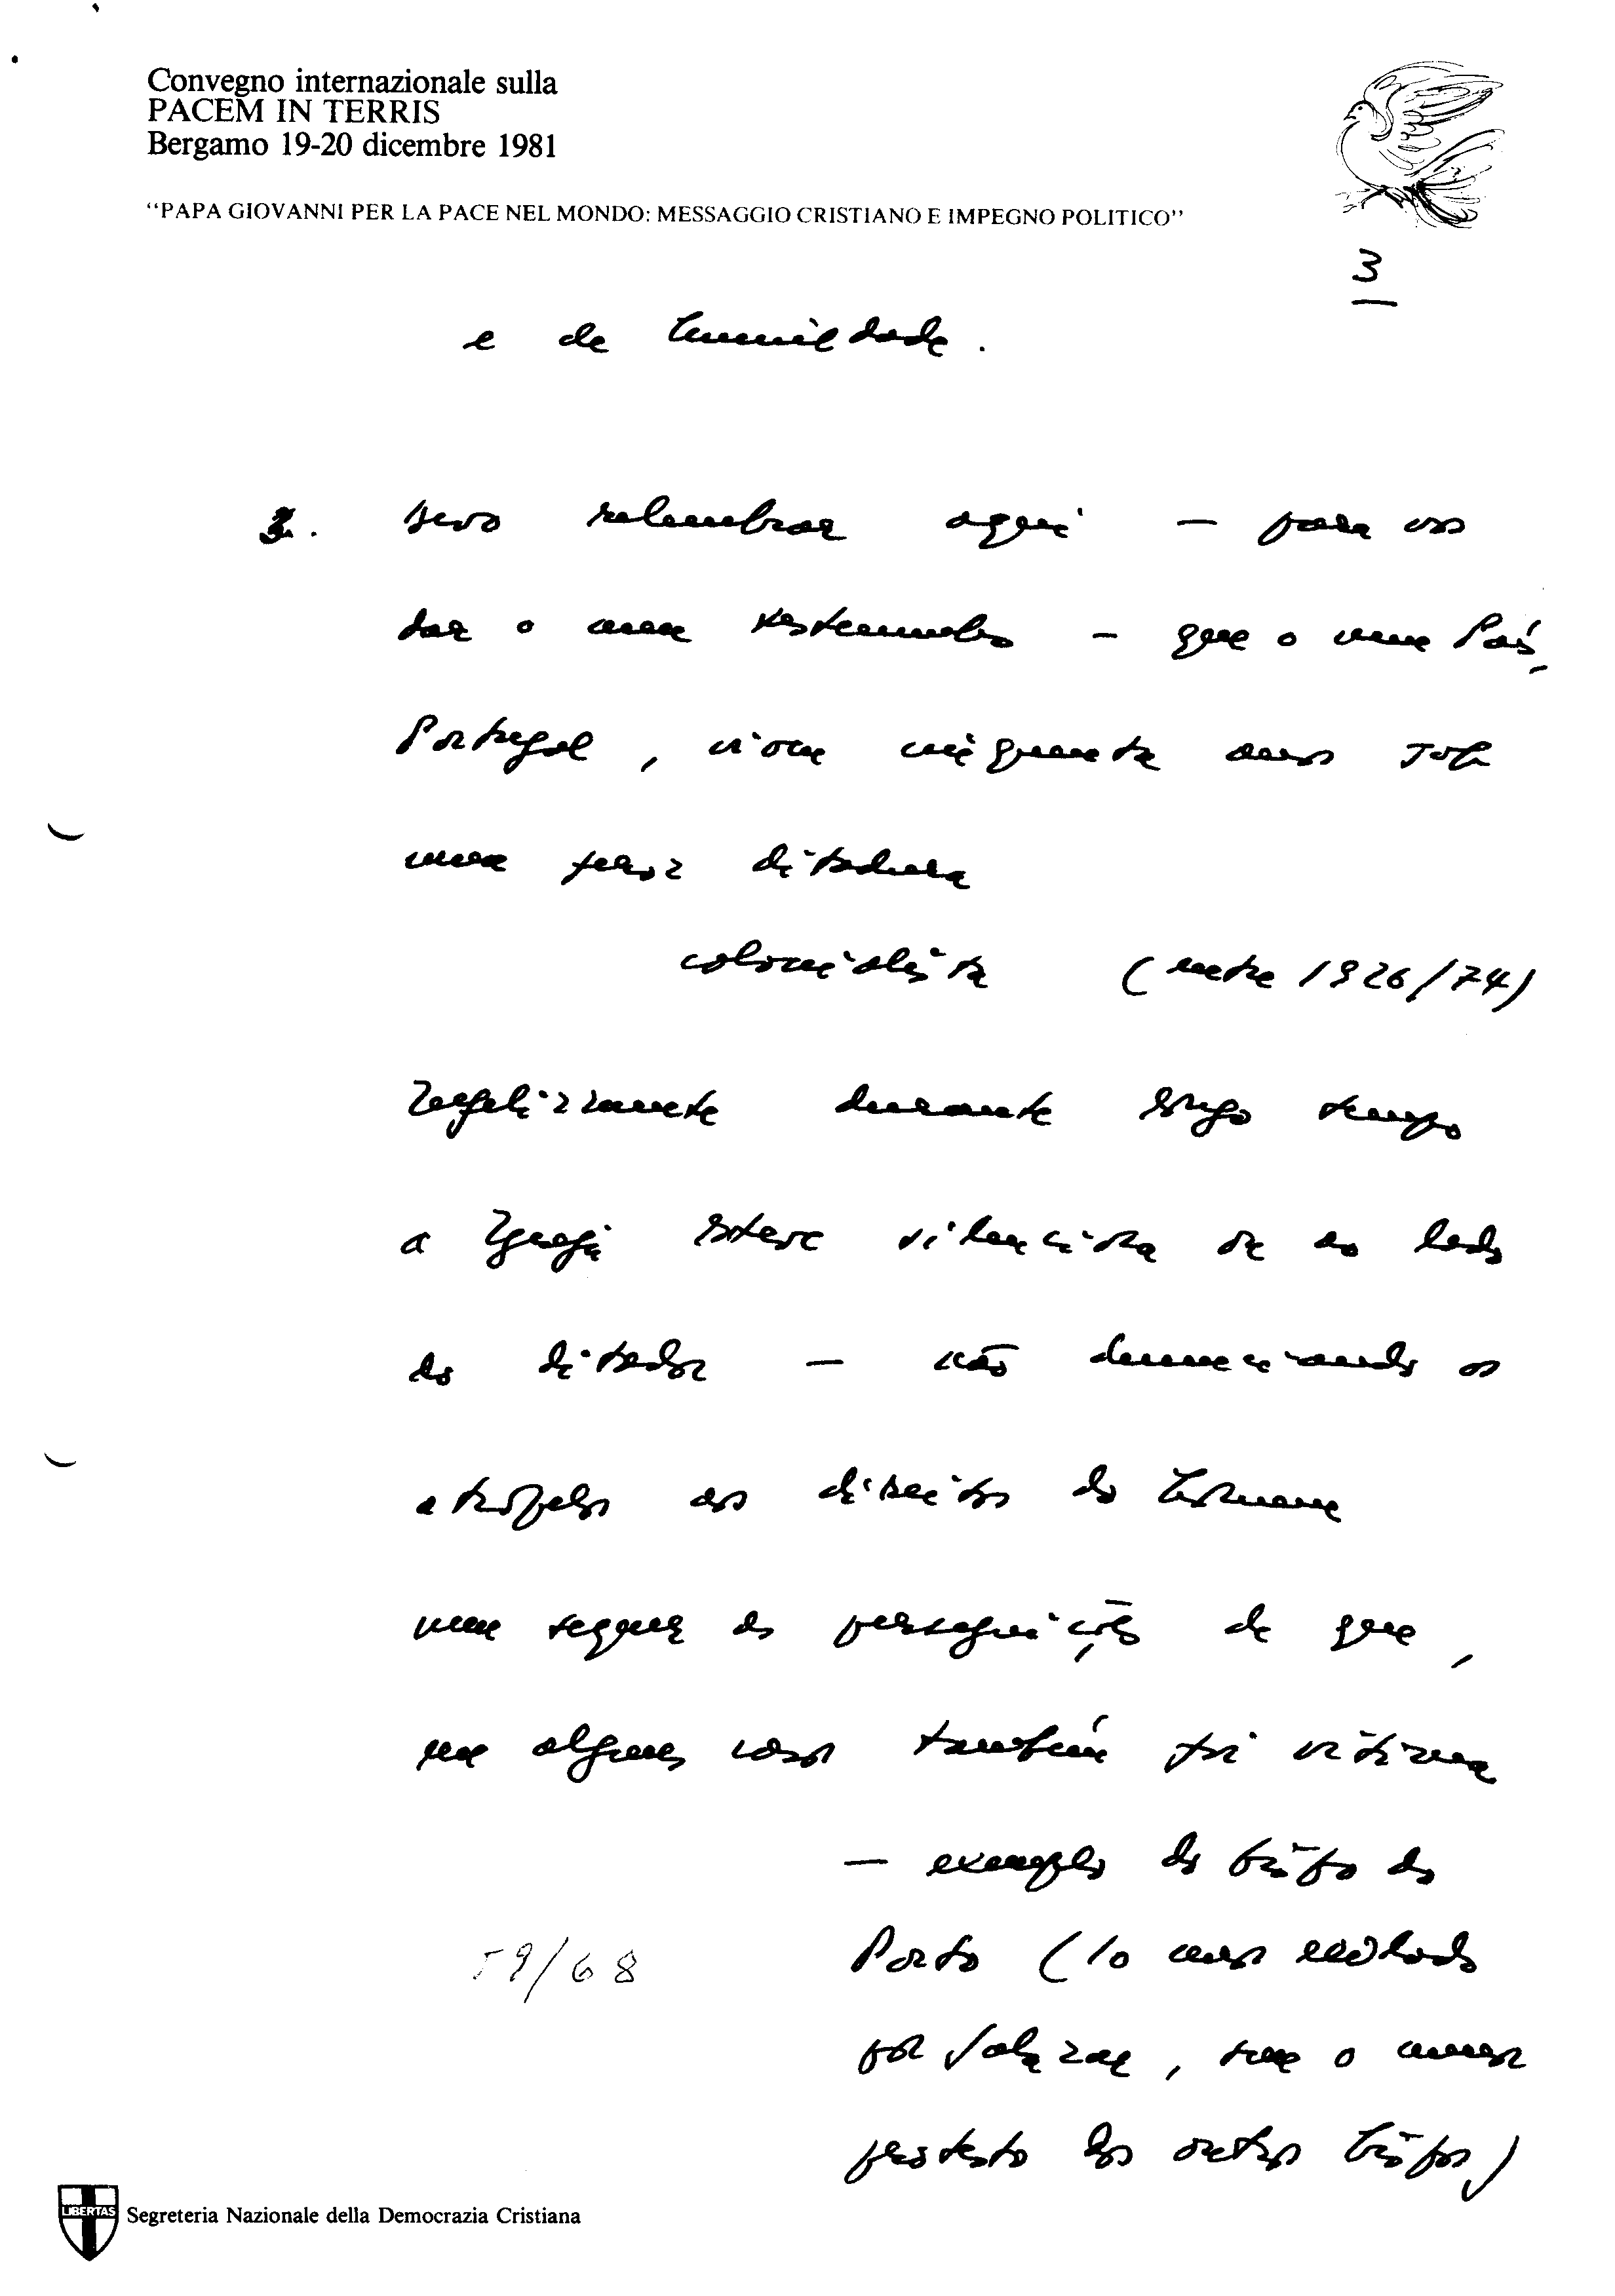 Convegno internazionale sulla
PACEM IN TERRIS
Bergamo 19-20 dicembre 1981
"PAPA GIOVANNI PER LA PACE NEL MONDO: MESSAGGIO CRISTIANO E IMPEGNO POLITICO"
3
e de humildade.
3. Devo relembrar aqui – para vos
dar o meu testemunho – que o meu País,
Portugal, viveu cinquenta anos sob
uma feroz ditadura
colonialista (entre 1926/74)
Infelizmente durante longo tempo
a Igreja esteve silenciosa ou ao lado
do ditador – não denunciando os
atropelos aos direitos do Homem
nem sequer as perseguições de que,
em alguns casos também foi vítima
– exemplo do bispo do
59/68
Porto (10 anos exilado
por Salazar, sem o menor
protesto dos outros bispos)
LIBERTAS
Segreteria Nazionale della Democrazia Cristiana